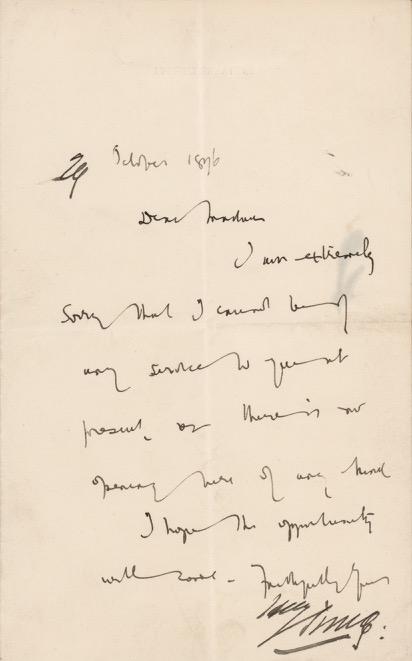 29 October 1896
Dear Madam
I am extremely
sorry that I cannot be of
any service to you at
present, as there is no
opening here of any kind
I hope the opportunity
will come - Faithfully Yours